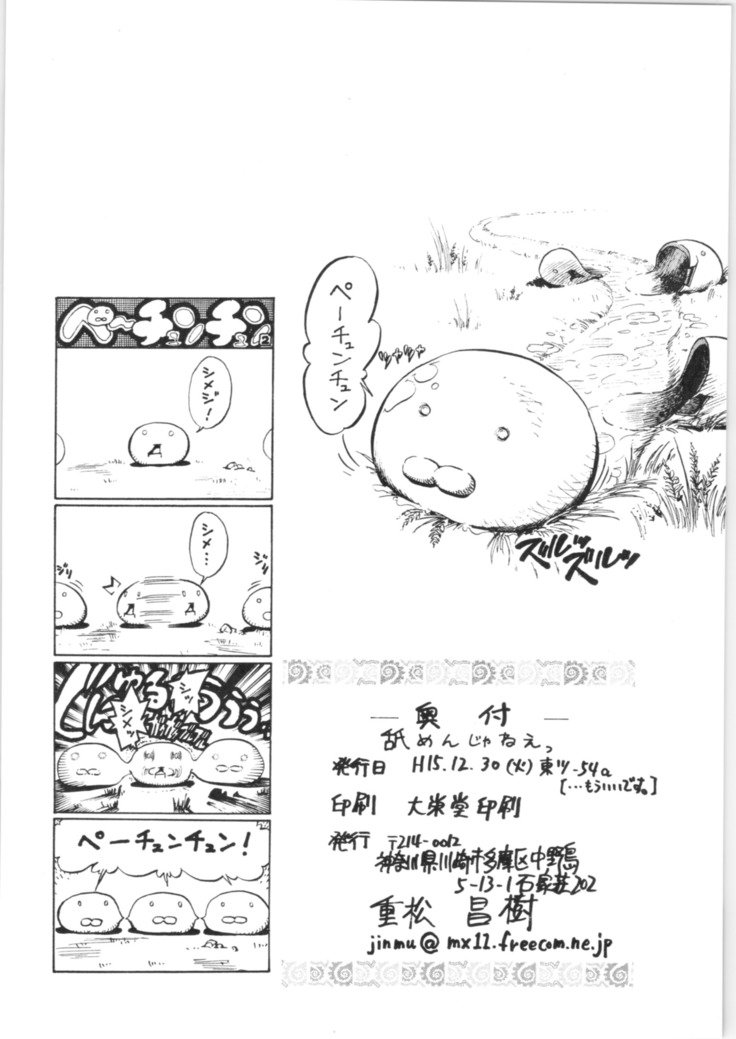 ペーチュンチュン
ペーチュンチュン
シメジ!
シメ…
ジリ
ジリ
シメッ
ペーチュンチュン!
ズルッ
ズルッ
奥付
舐めんじゃねえっ
発行日 H15.12.30(火)東ツ-54a
[…もういいです。]
印刷 大栄堂印刷
発行 〒214-0012
神奈川県川崎市多摩区中野島
5-13-1石塚荘202
重松 昌樹
jinmu@mx12.freecom.ne.jp